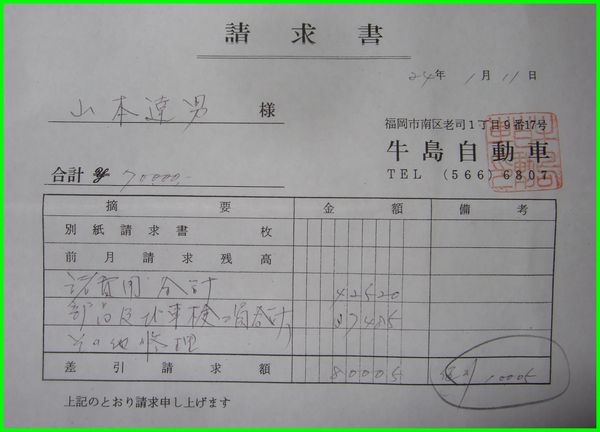 請求書
24年1月11日
山本達男 様
福岡市南区老司1丁目9番17号
牛島自動車
TEL (566) 6807
合計 ¥70000.-
摘要 金額 備考
別紙請求書 枚
前月請求残高
諸費用合計 42520
部品及び車検 合計 37485
その他修理
差引請求額 80005 10005
上記のとおり請求申し上げます